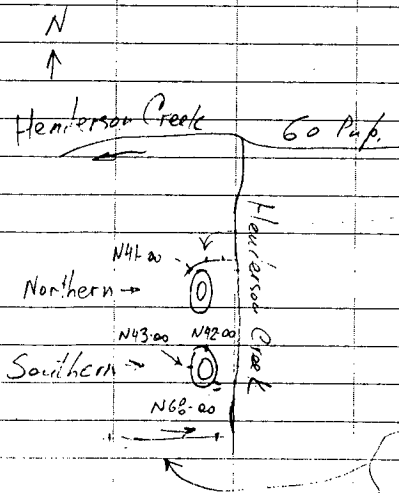 N
Henderson Creek 60 Pup.
Henderson Creek
N41.00
Northern →
N43.00 N42.00
Southern →
N60.00